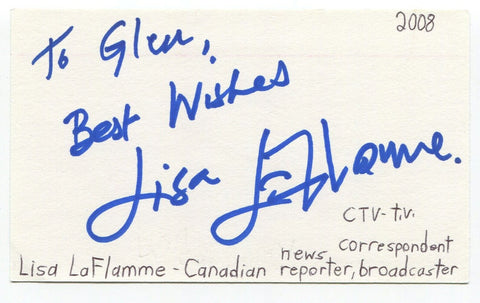 2008
To Glen,
Best Wishes
Lisa LaFlamme.
CTV-t.v.
news correspondent
Lisa LaFlamme - Canadian reporter, broadcaster